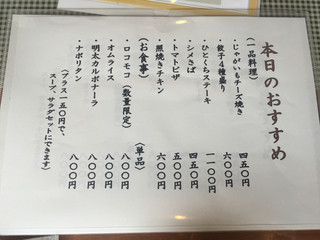 本日のおすすめ
(一品料理)
・じゃがいもチーズ焼き 四五〇円
・餃子4種盛り 六〇〇円
・ひとくちステーキ 一一〇〇円
・シメさば 四五〇円
・トマトピザ 五〇〇円
・照焼きチキン 六〇〇円
(お食事) (単品)
・ロコモコ(数量限定) 八〇〇円
・オムライス 八〇〇円
・明太カルボナーラ 八〇〇円
・ナポリタン 八〇〇円
(プラス一五〇円で、
スープ、サラダセットにできます)